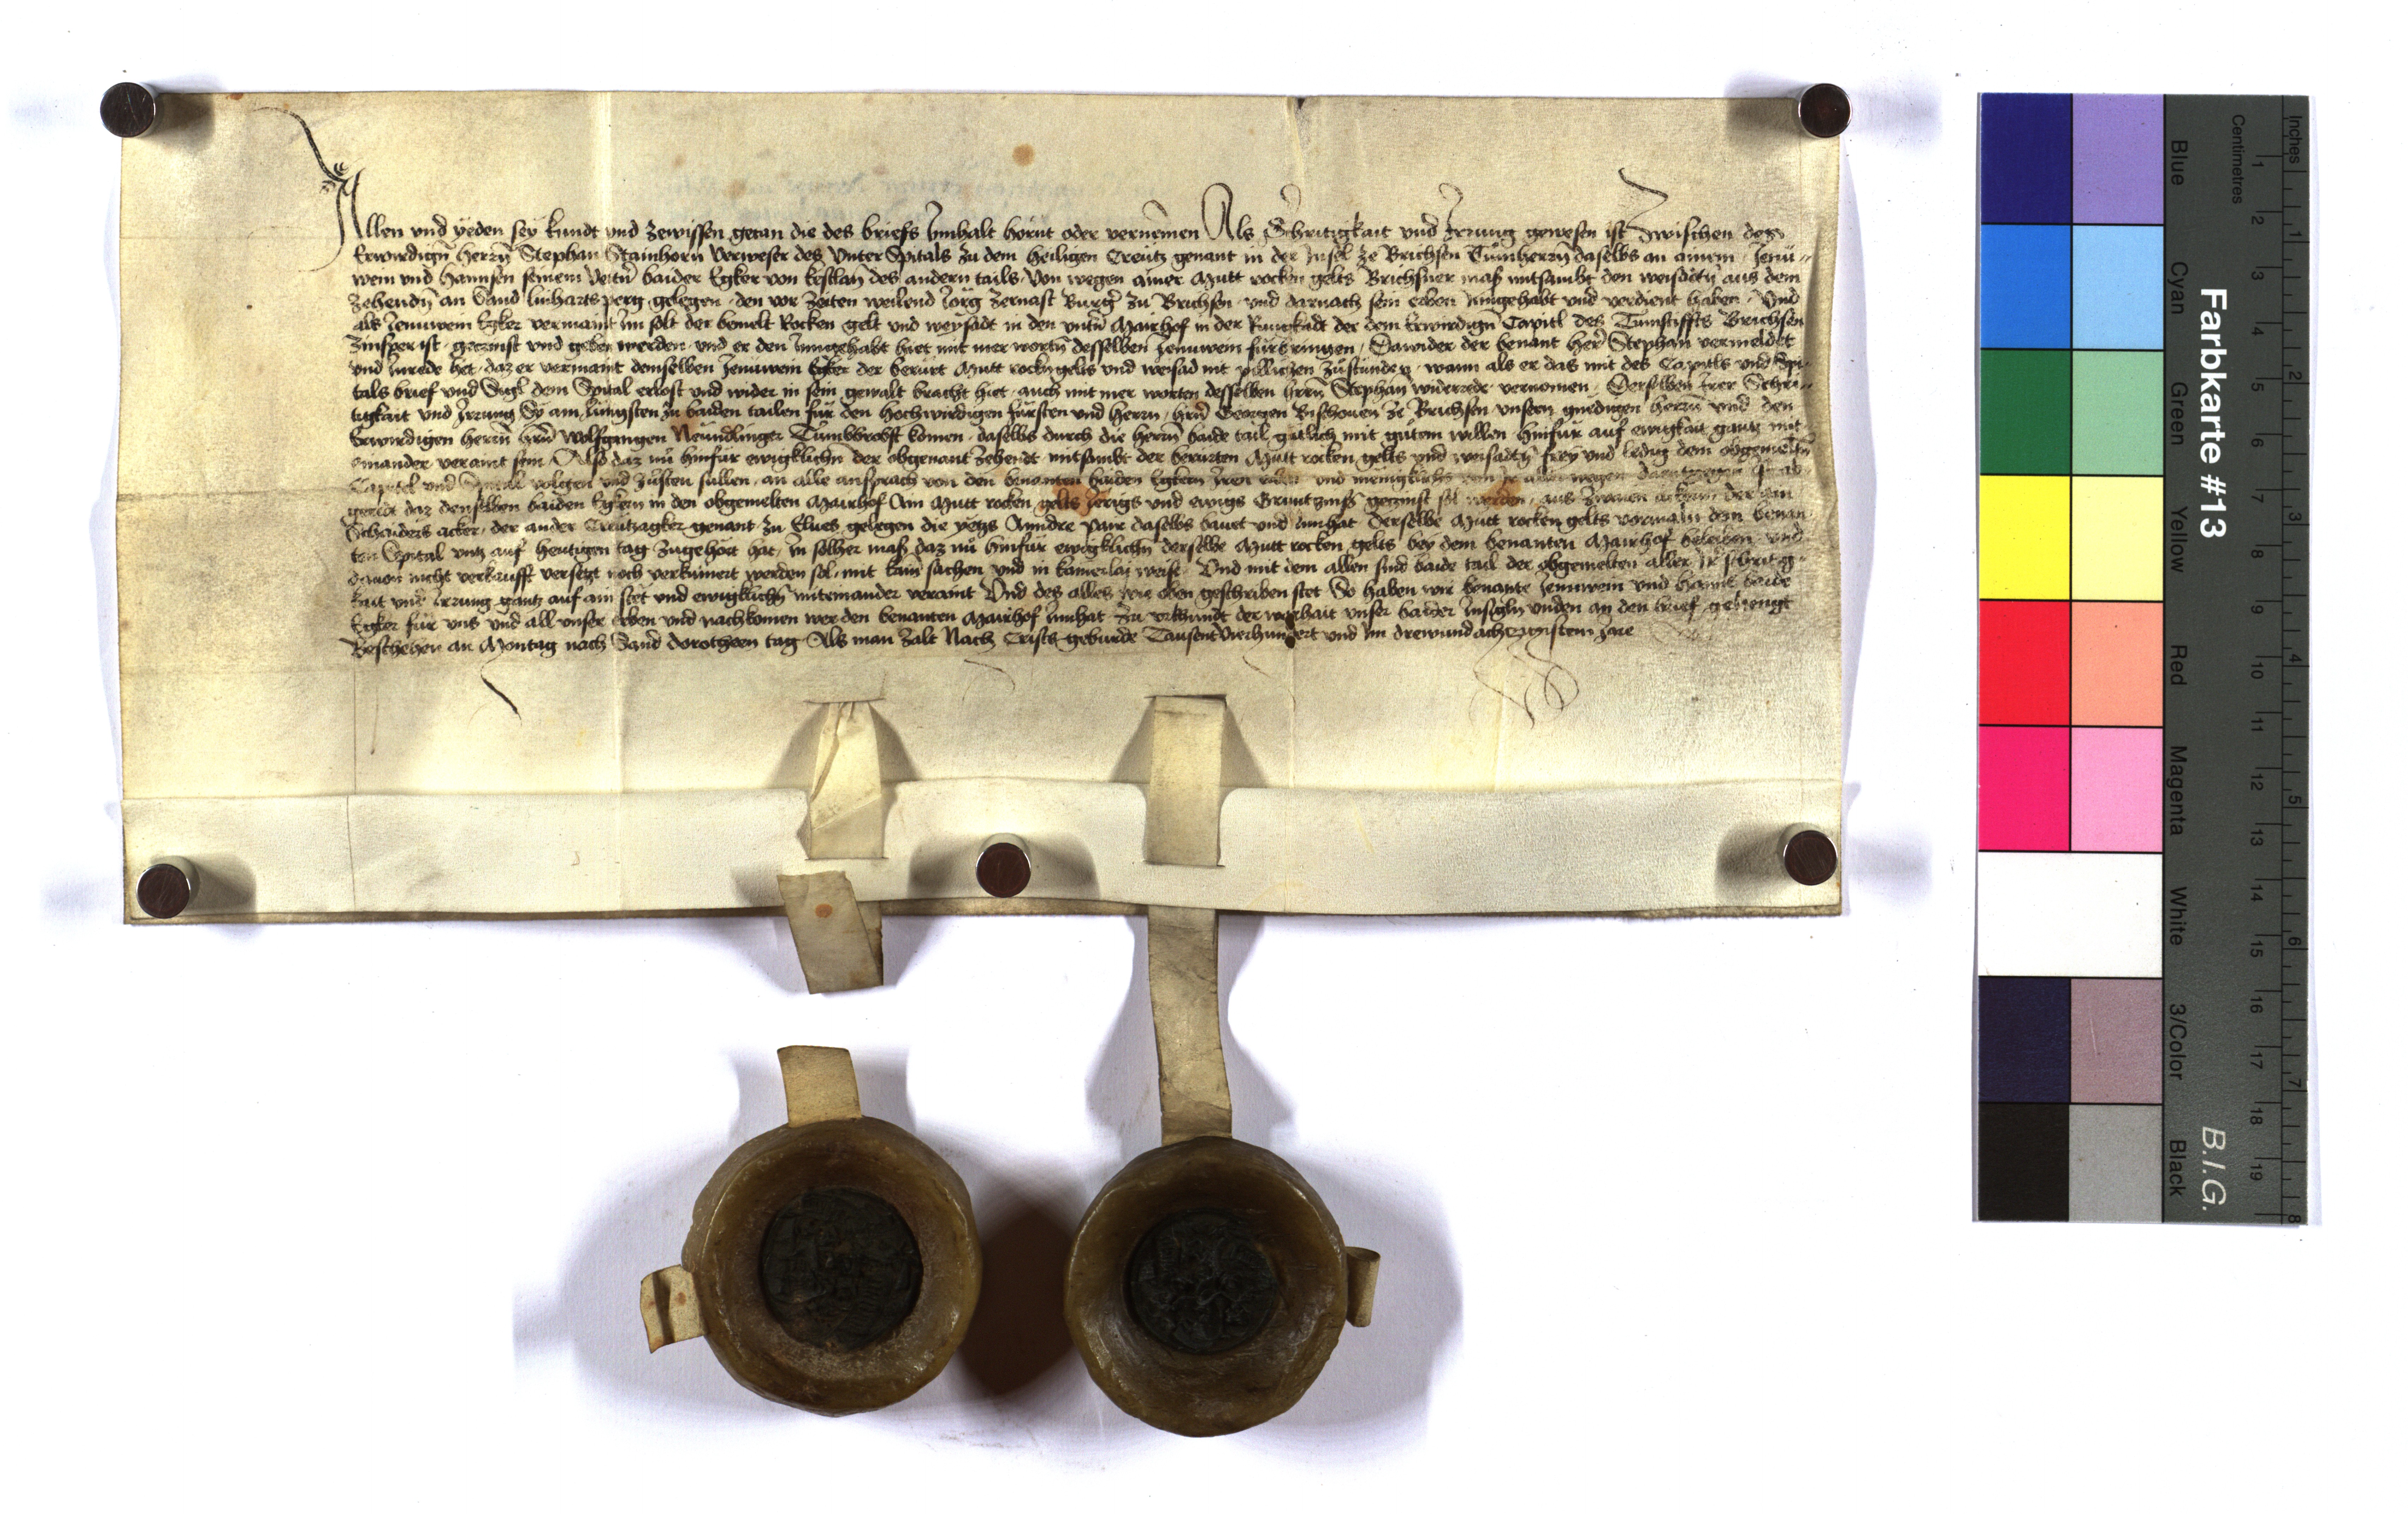 Allen vnd yeden sey kundt vnd zewissen getan die des briefs Innhalt hörnt oder vernemen Als Schritigkait vnd Irrung gewesen ist Zwischen des
Erwirdign̄ herrn̄ Stephan Stainhorn Verweser des Vnter Spitals zu dem heiligen Creutz genant in der Insel ze Brichsen Tumherrn̄ daselbs an ainem Jenu-
wein vnd hannsen seinem Vetn̄ baider Egker von kestlan des andern tails Von wegen ainer Mutt rocken gelts Brichsner mass mitsambt den weisötn̄ aus dem
zehendn̄ an Sand linharts perg gelegen den vor zeiten weilend Jörg Zernast Burgr̄ zu Brichsen vnd darnach sein erben Inngehabt vnd verdient haben Vnd
als Jenuwein Egker vermaint Im solt der bemelt Rocken gelt vnd weysadt in den vntn̄ Mairhof in der Rungkadt der dem Erwirdign̄ Capitl des Tumstiffts Brichsen
Zinsper ist geczinst vnd geben werden vnd er den Inngehabt hiet mit mer wortn̄ desselben Jenuwein fürbringen Dawider der benant her̄ Stephan vermeldet
vnd Inrede het daz er vermaint demselben Jenuwein Egker der berürt Mutt rockn̄ gelts vnd weisad nit pillichen zustunden wann als er das mit des Capitls vnd Spi-
tals brief vnd Sigl dem Spital erlost vnd wider in sein gewalt bracht hiet auch mit mer worten desselben hern̄ Stephan widerrede vernomen Derselben Irer Schri-
tigkait vnd Irrung Sy am Jüngsten zu baiden tailen für den hochwirdigen fürsten vnd herrn hrn̄ Georigen Bischouen ze Brichsen vnsern gnedigen herrn̄ vnd den
Erwirdigen herrn̄ hrn̄ Wolfgangen Neundlinger Tumbbrobst komen daselbs durch die herrn̄ baide tail gütlich mit gutem willen hinfür auf ewigkait gantz mit
einander veraint sein Also daz nu hinfür ewigklichn̄ der obgenant Zehendt mitsambt der berürten Mutt rocken gelts vnd weisadtn̄ frey vnd ledig dem obgemeltn̄
Capitel vnd Spital volgen vnd zusten süllen an alle ansprach von den benanten baiden Egkern Iren erben vnd menigklichs von Ir aller wegen daentgegen ist ab
geredt daz denselben baiden Egkern in den obgemelten Mairhof Ain Mutt rocken gelts Jerigs vnd ewigs Gruntzinss geczinst sol werden aus zwaien äckern der ain
Schniders acker der ander Creutzagker genant zu Elves gelegen die yetzs Anndre Pair daselbs bauet vnd Innhat derselbe Mutt rocken gelts vormaln dem benan-
ten Spital vntz auf heutigen tag zugehört hat In solher mass daz nu hinfür ewigklichn̄ derselbe Mutt rocken gelts bey dem benanten Mairhof beleiben vnd
dauon nicht verkaufft versetzt noch verkümert werden sol mit kain sachen vnd in kainerlai weise Vnd mit dem allen sind baide tail der obgemelten aller Ir schritig-
kait vnd Irrung gantz auf ain stet vnd ewigklichn̄ miteinander veraint Vnd des alles wie oben geschriben stet So haben wir benante Jenuwein vnd hanns baide
Egker für vns vnd all vnser Erben vnd nachkomen wer den benanten Mairhof Innhat zu vrkhundt der warhait vnser baider Insigln vnden an den brief gehengt
Beschehen an Montag nach Sand dorotheen tag Als man zalt Nach Cristi geburde Tausent Vierhundert vnd Im drewundachczigistem Jare
Farbkarte #13
B.I.G.
Inches
Centimetres
Blue Cyan Green Yellow Red Magenta White 3/Color Black
1 2 3 4 5 6 7 8 9 10 11 12 13 14 15 16 17 18 19
1 2 3 4 5 6 7 8